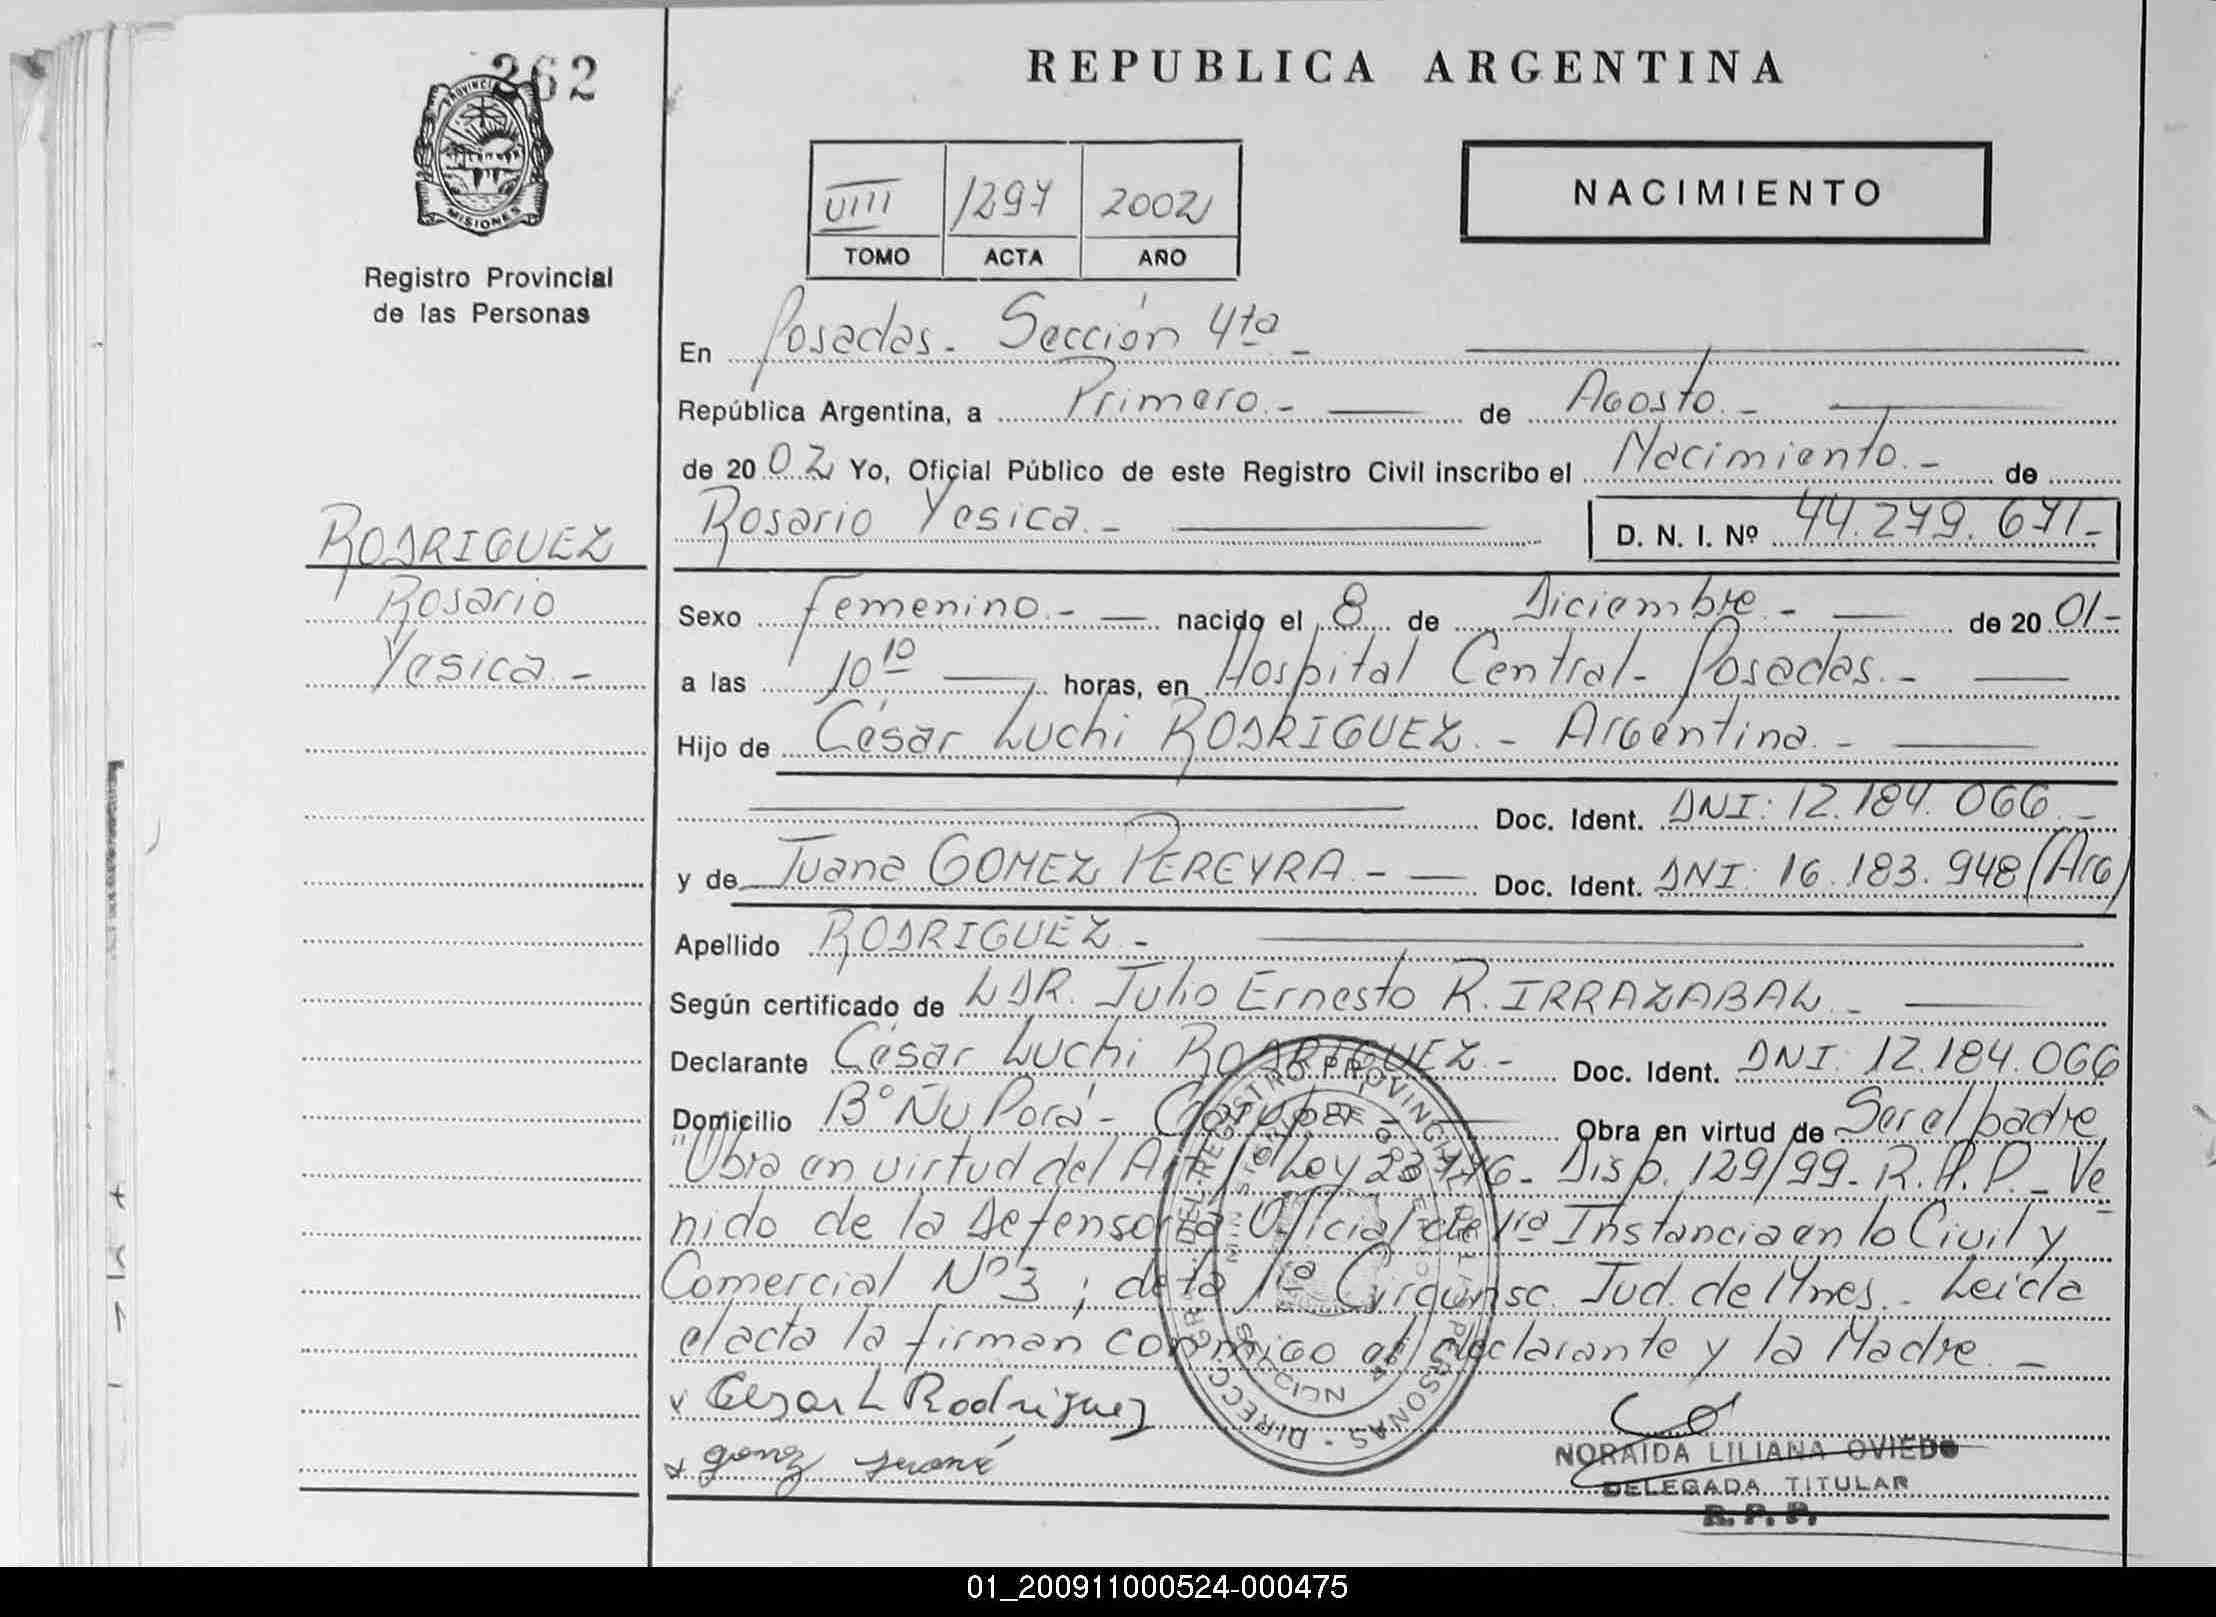 262
PROVINCIA
MISIONES
Registro Provincial
de las Personas
REPUBLICA ARGENTINA
VIII 1297 2002
TOMO ACTA AÑO
NACIMIENTO
En Posadas - Sección 4ta -
República Argentina, a Primero.- de Agosto.-
de 2002 Yo, Oficial Público de este Registro Civil inscribo el Nacimiento.- de
Rosario Yesica.- D. N. I. Nº 44.279.671-
RODRIGUEZ
Rosario
Yesica.-
Sexo Femenino.- nacido el 8 de Diciembre.- de 2001-
a las 10 10 horas, en Hospital Central - Posadas.-
Hijo de César Luchi RODRIGUEZ.- Argentina.-
Doc. Ident. DNI: 12.184.066.-
y de Juana GOMEZ PEREYRA.- Doc. Ident. DNI: 16.183.948 (Arg)
Apellido RODRIGUEZ.-
Según certificado de LDR. Julio Ernesto R. IRRAZABAL.-
Declarante César Luchi RODRIGUEZ.- Doc. Ident. DNI: 12.184.066
Domicilio Bº Ñu Porá - Obra en virtud de Ser el padre
"Obra en virtud del Art 1º Ley - Disp. 129/99 - R.P.P.- Ve
nido de la Defensoría Oficial de 1ra Instancia en lo Civil y
Comercial Nº 3; de la 1ra Circunsc. Jud. de Mnes.- Leída
el acta la firman conmigo el declarante y la Madre.-
x Cesar L Rodriguez
x
NORAIDA LILIANA OVIEDO
DELEGADA TITULAR
R. P. P.
DIRECC. GRAL. DEL REGISTRO PROVINCIAL DE LAS PERSONAS
01_200911000524-000475